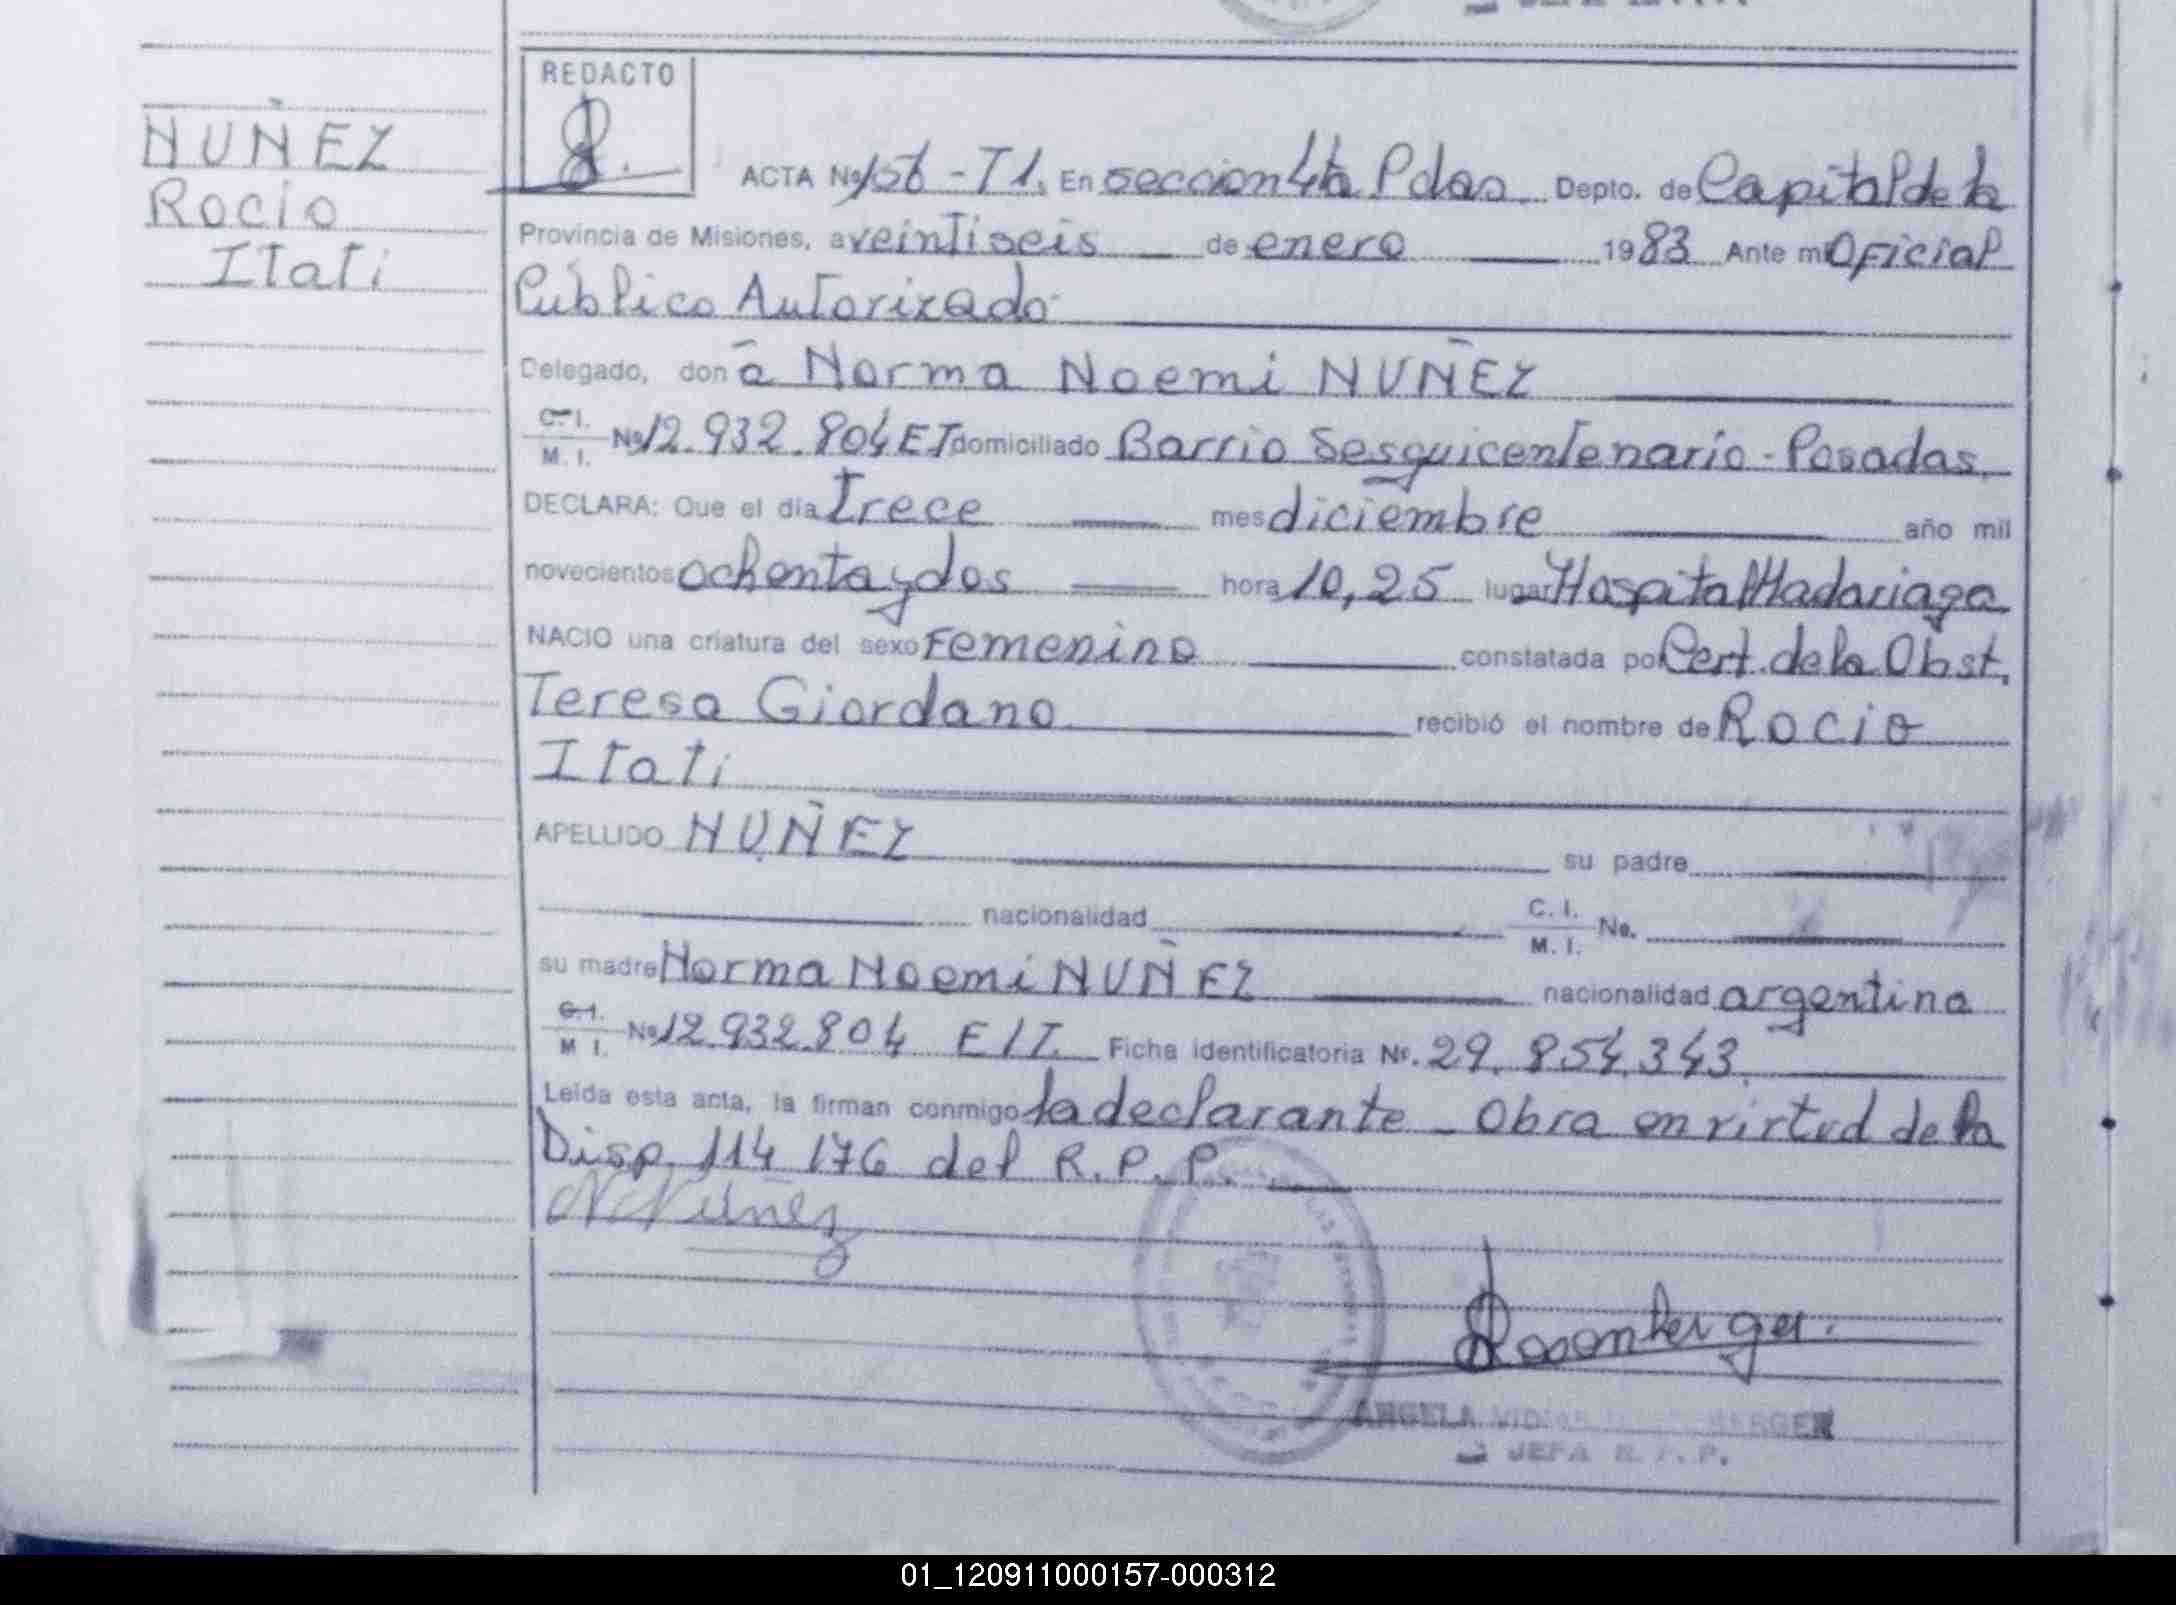 REDACTO
NUÑEZ
Rocio
Itati
ACTA Nº 106 - T1. En seccion 4ta Pdas. Depto. de Capital de la
Provincia de Misiones, a veintiseis de enero 1983 Ante mi Oficial
Público Autorizado
Delegado, don ã Norma Noemi NUÑEZ
C. I.
M. I. Nº 12.932.804 ET domiciliado Barrio Sesquicentenario - Posadas.
DECLARA: Que el día trece mes diciembre año mil
novecientos ochenta y dos hora 10,25 lugar Hospital Madariaga
NACIO una criatura del sexo Femenino constatada por Cert. de la Obst.
Teresa Giordano recibió el nombre de Rocio
Itati
APELLIDO NUÑEZ su padre
nacionalidad C. I.
M. I. No.
su madre Norma Noemi NUÑEZ nacionalidad argentina
C. I.
M I. Nº 12.932.804 E/T. Ficha identificatoria Nº. 29.854.343.
Leída esta acta, la firman conmigo la declarante - Obra en virtud de la
Disp. 114/76 del R.P.P.
N Nuñez
Rosenberger.
ANGELA BERGER
JEFA R. P. P.
01_120911000157-000312